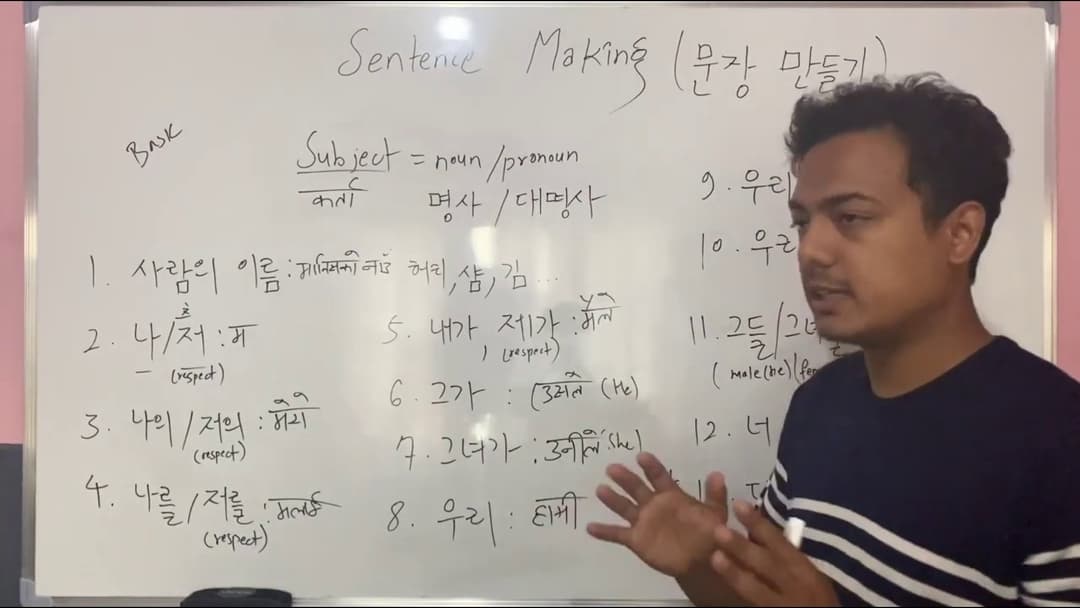 Sentence Making (문장 만들기)
Basic
Subject = noun/pronoun
कर्ता 명사 / 대명사
1. 사람의 이름 : मानिसको नाउँ 허리, 샴, 김 ...
2. 나/저 : म
(respect)
3. 나의 / 저의 : मेरो
(respect)
4. 나를 / 저를 : मलाई
(respect)
5. 내가, 제가 : मैले
(respect)
6. 그가 : (उसले (He)
7. 그녀가 : उनीले (she)
8. 우리 : हामी
9. 우리
10. 우리
11. 그들/그녀
( male(he)
12. 너